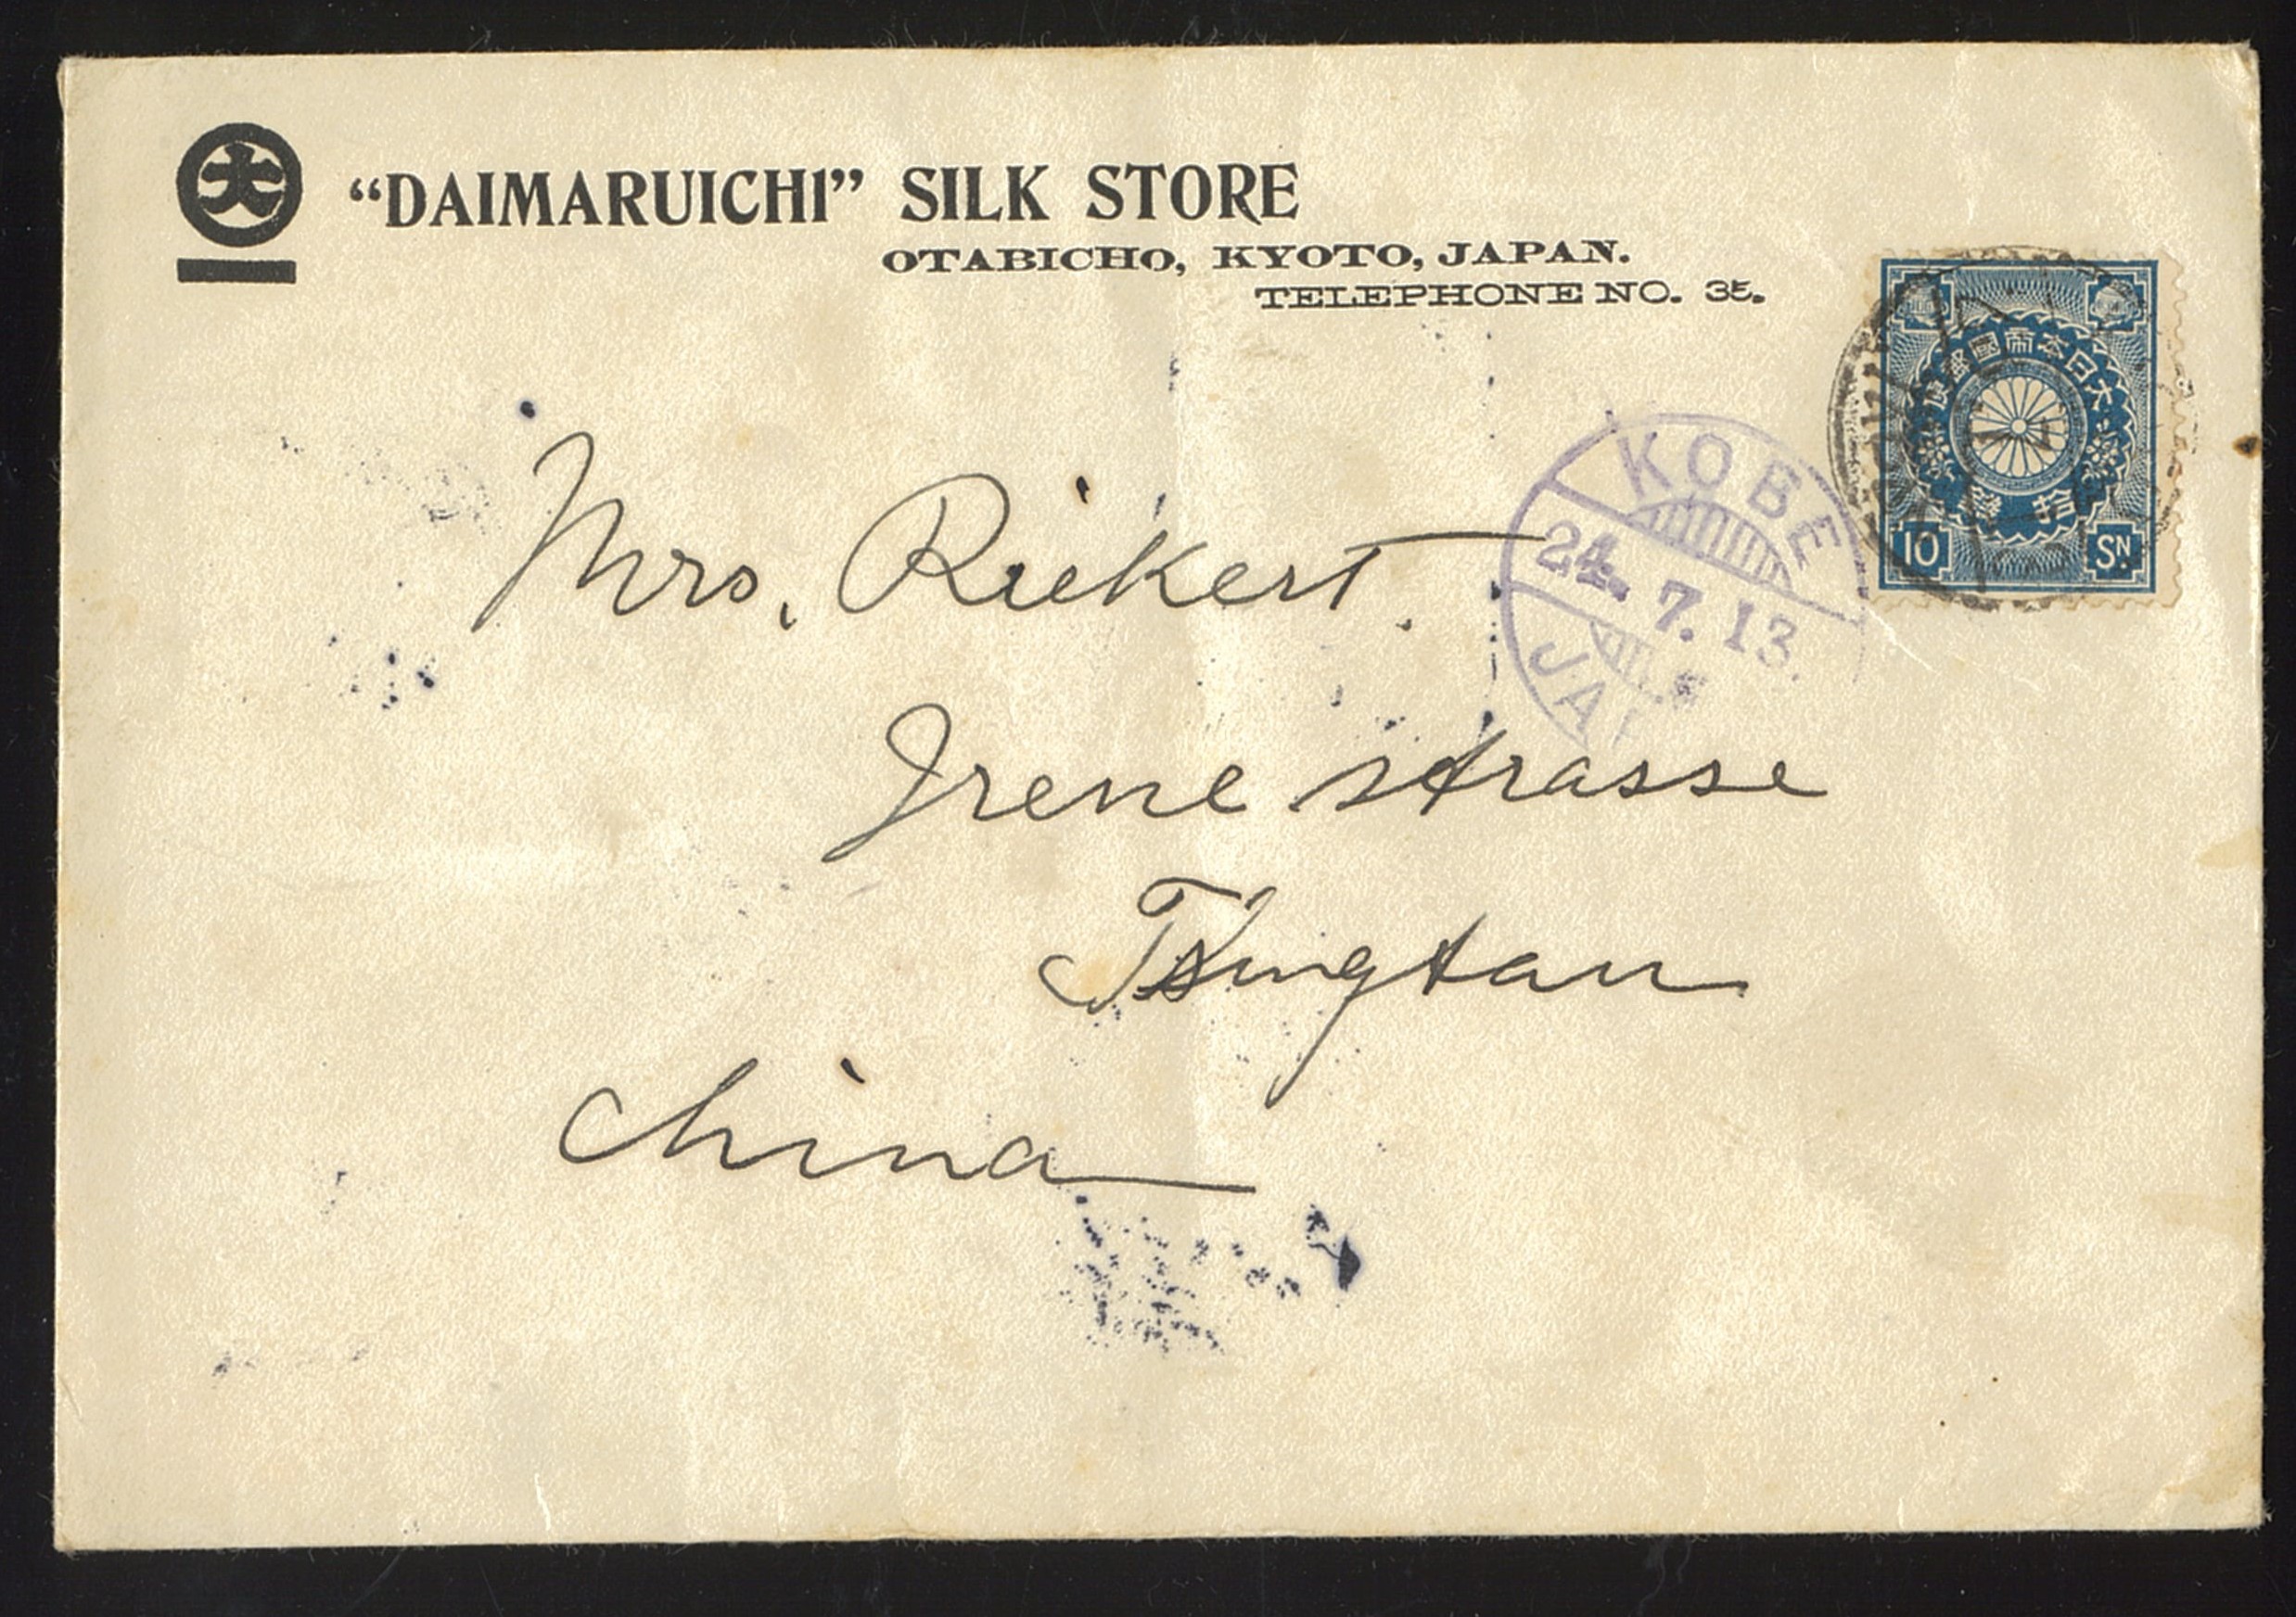 大
一
“DAIMARUICHI” SILK STORE
OTABICHO, KYOTO, JAPAN.
TELEPHONE NO. 35.
大日本帝國郵便
拾銭
10 SN.
KOBE
24. 7. 13.
JAP
Mrs. Riekert.
Irene strasse
Tsingtau
China